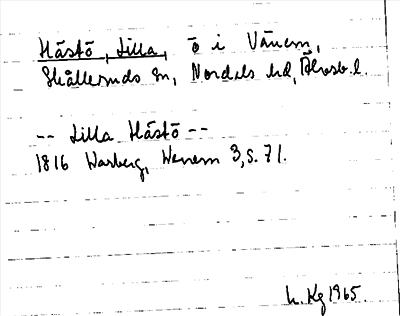 Hästö, Lilla, ö i Vänern,
Skållerud's sn, Nordals hd, Älvsb. l.
-- Lilla Hästö --
1816 Warberg, Wenern 3, s. 71.
L. Kg 1965.